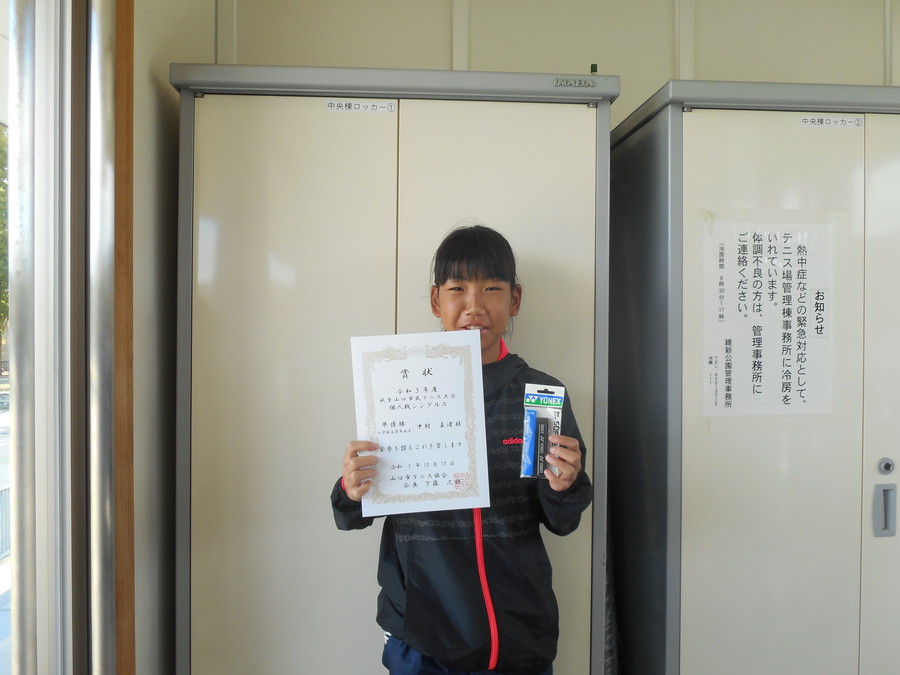 INABA
中央棟ロッカー①
中央棟ロッカー②
賞状
令和3年度
秋季山口市民テニス大会
個人戦シングルス
準優勝 中村
栄誉を讃えこれを賞します
令和3年10月17日
山口市テニス協会
会長
YONEX
adidas
お知らせ
熱中症などの緊急対応として、
テニス場管理棟事務所に冷房を
いれています。
体調不良の方は、管理事務所に
ご連絡ください。
(冷房時間 8時30分~17時)
維新公園管理事務所